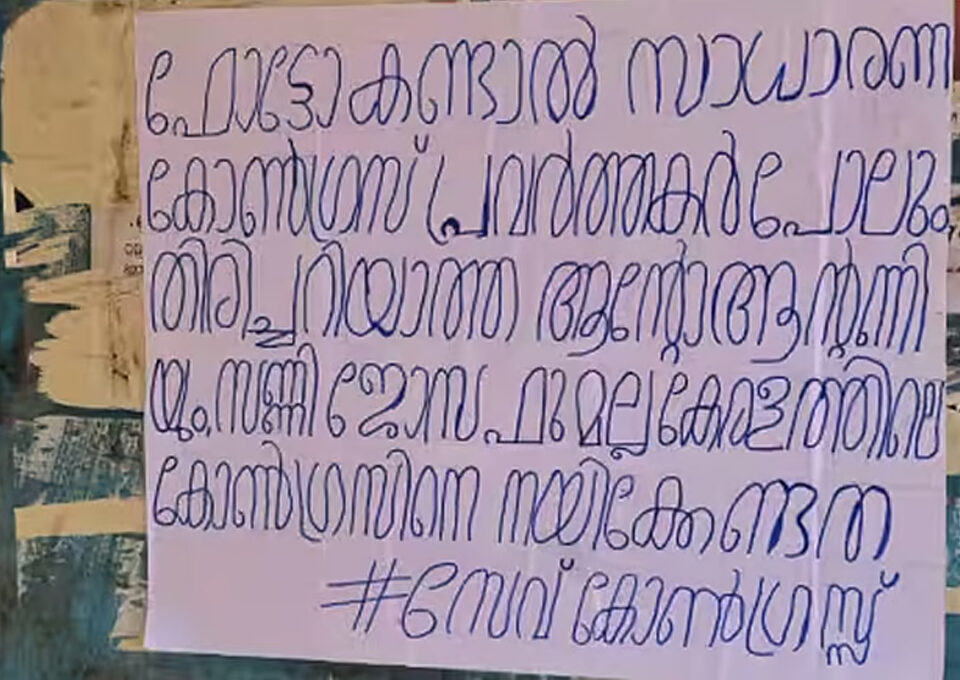 ഫോട്ടോ കണ്ടാൽ സാധാരണ
കോൺഗ്രസ് പ്രവർത്തകർ പോലും
തിരിച്ചറിയാത്ത ആന്റോ ആന്റണി
യും, സണ്ണി ജോസഫുമല്ല കേരളത്തിലെ
കോൺഗ്രസിനെ നയിക്കേണ്ടത
#സേവ് കോൺഗ്രസ്സ്